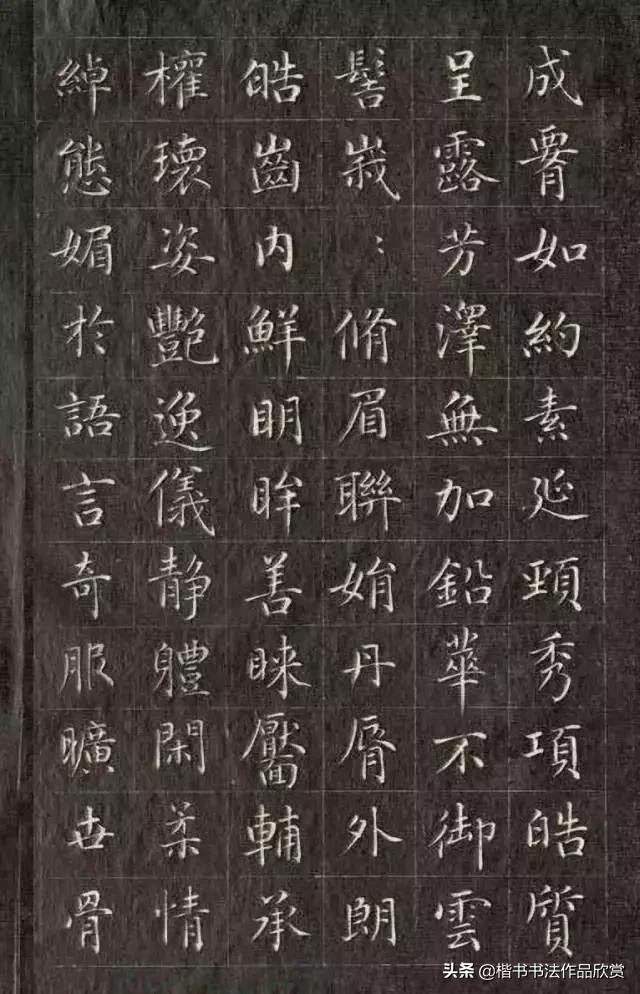 成如約素延頸秀項皓質
呈露芳澤無加鉛華不御雲
髻峨〻脩眉聯娟丹脣外朗
皓齒内鮮明眸善睞靨輔承
權瓌姿豔逸儀静軆閑柔情
綽態媚於語言奇服曠世骨
头条 @楷书书法作品欣赏